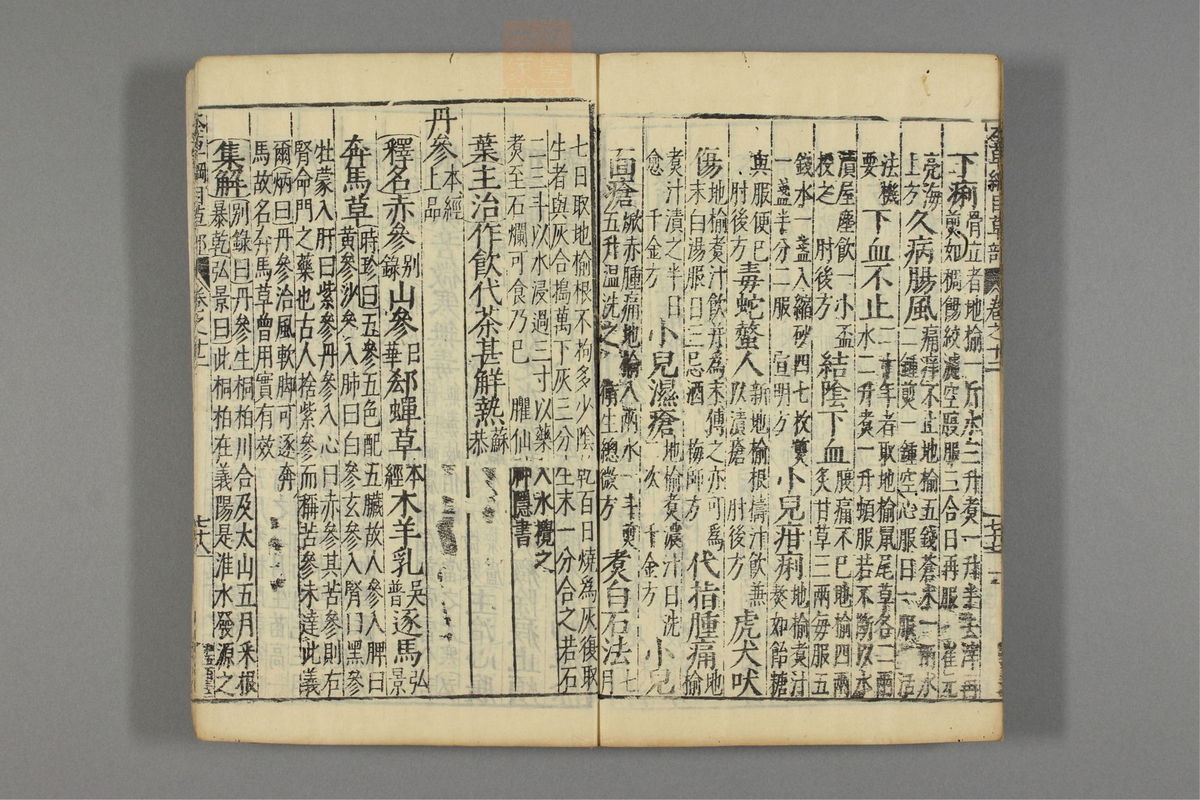 本草綱目草部 卷之十二 七十七
下痢 骨立者地榆一斤水三升煮一升半去滓再
煎如稠餳絞濾空腹服三合日再服 崔元
亮海
上方 久病腸風 痛痒不止地榆五錢蒼朮一兩水
二鍾煎一鍾空心服日一服 活
法機
要 下血不止 二十年者取地榆鼠尾草各二兩
水二升煮一升頓服若不斷以水
漬屋塵飲一小盃
投之 肘後方 結陰下血 腹痛不已地榆四兩
炙甘草三兩每服五
錢水一盞入縮砂四七枚煎
一盞半分二服 宣明方 小兒疳痢 地榆煮汁
熬如飴糖
與服便已
肘後方 毒蛇螫人 新地榆根擣汁飲兼
以漬瘡 肘後方 虎犬咬
傷 地榆煮汁飲并為末傅之亦可為
末白湯服日三忌酒 梅師方 代指腫痛 地
榆
煮汁漬之半日
愈 千金方 小兒濕瘡 地榆煮濃汁日洗
二次 千金方 小兒
面瘡 焮赤腫痛地榆八兩水一斗煎
五升溫洗之 衛生總微方 煮白石法 七
月
七日取地榆根不拘多少陰乾百日燒為灰復取
生者與灰合搗萬下灰三分生末一分合之若石
二三斗以水浸過三寸以藥入水攪之
煮至石爛可食乃已 臞仙神隱書
葉主治作飲代茶甚解熱 蘇
恭
丹參 本經
上品
釋名赤參 別
錄 山參 日
華 郄蟬草 本
經 木羊乳 吳
普 逐馬 弘
景
奔馬草 時珍曰五參五色配五臟故人參入脾曰
黃參沙參入肺曰白參玄參入腎曰黑參
牡蒙入肝曰紫參丹參入心曰赤參其苦參則右
腎命門之藥也古人捨紫參而稱苦參未達此義
爾炳曰丹參治風軟脚可逐奔
馬故名奔馬草曾用實有效
集解 別錄曰丹參生桐柏川合及太山五月采根
暴乾弘景曰此桐柏在義陽是淮水發源之
本草綱目草部 卷之十二 七十八